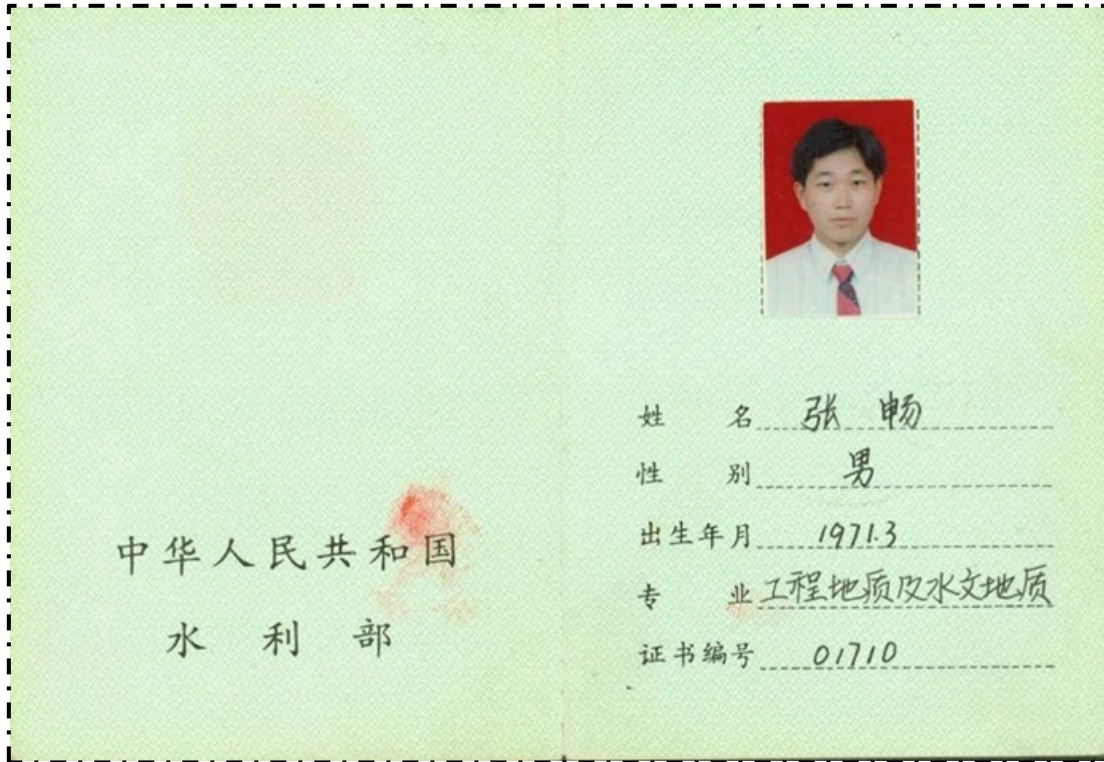 中华人民共和国
水利部
姓名 张畅
性别 男
出生年月 1971.3
专业 工程地质及水文地质
证书编号 01710